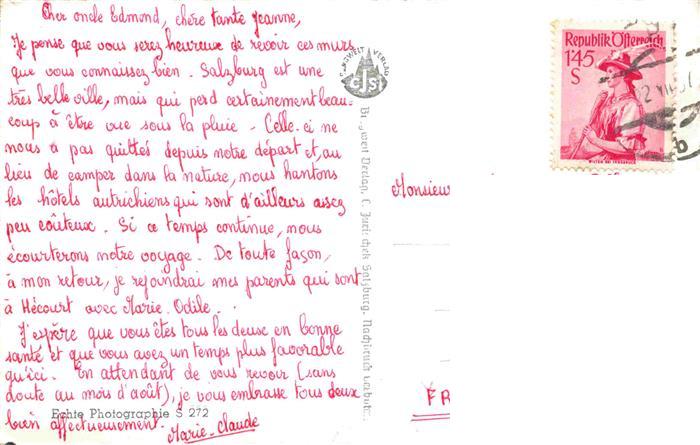 Cher oncle Edmond, chère tante Jeanne,
Je pense que vous serez heureux de revoir ces murs
que vous connaissez bien. Salzburg est une
très belle ville, mais qui perd certainement beau-
coup à être vue sous la pluie. Celle-ci ne
nous a pas quittés depuis notre départ et, au
lieu de camper dans la nature, nous hantons
les hôtels autrichiens qui sont d'ailleurs assez
peu coûteux. Si ce temps continue, nous
écourterons notre voyage. De toute façon,
à mon retour, je rejoindrai mes parents qui sont
à Hécourt avec Marie-Odile.
J'espère que vous êtes tous les deux en bonne
santé et que vous avez un temps plus favorable
qu'ici. En attendant de vous revoir (sans
doute au mois d'août), je vous embrasse tous deux
bien affectueusement.
Marie-Claude
Echte Photographie S 272
BERGWELT VERLAG
CJS
Bergwelt Verlag, C. Jurischek Salzburg. Nachdruck verboten
Republik Österreich
1'45
S
WILTEN BEI INNSBRUCK
b
Monsieur
FR